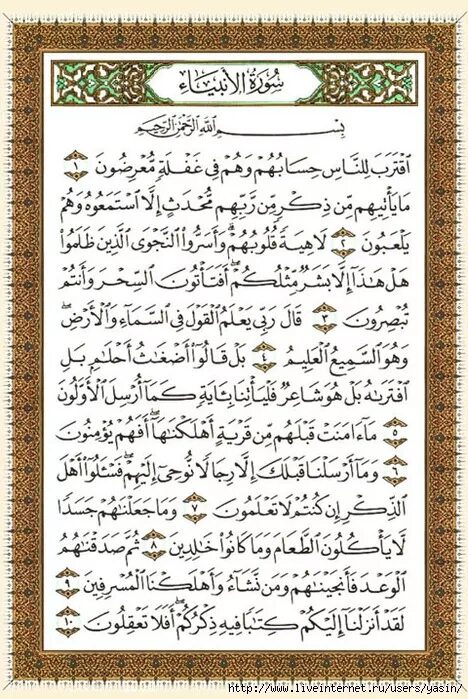 سُورَةُ الأَنبِيَاءِ
بِسْمِ اللَّهِ الرَّحْمَٰنِ الرَّحِيمِ
اقْتَرَبَ لِلنَّاسِ حِسَابُهُمْ وَهُمْ فِي غَفْلَةٍ مُّعْرِضُونَ ١
مَا يَأْتِيهِم مِّن ذِكْرٍ مِّن رَّبِّهِم مُّحْدَثٍ إِلَّا اسْتَمَعُوهُ وَهُمْ
يَلْعَبُونَ ٢ لَاهِيَةً قُلُوبُهُمْ ۗ وَأَسَرُّوا النَّجْوَى الَّذِينَ ظَلَمُوا
هَلْ هَٰذَا إِلَّا بَشَرٌ مِّثْلُكُمْ ۖ أَفَتَأْتُونَ السِّحْرَ وَأَنتُمْ
تُبْصِرُونَ ٣ قَالَ رَبِّي يَعْلَمُ الْقَوْلَ فِي السَّمَاءِ وَالْأَرْضِ ۖ
وَهُوَ السَّمِيعُ الْعَلِيمُ ٤ بَلْ قَالُوا أَضْغَاثُ أَحْلَامٍ بَلِ
افْتَرَاهُ بَلْ هُوَ شَاعِرٌ فَلْيَأْتِنَا بِآيَةٍ كَمَا أُرْسِلَ الْأَوَّلُونَ
٥ مَا آمَنَتْ قَبْلَهُم مِّن قَرْيَةٍ أَهْلَكْنَاهَا ۖ أَفَهُمْ يُؤْمِنُونَ
٦ وَمَا أَرْسَلْنَا قَبْلَكَ إِلَّا رِجَالًا نُّوحِي إِلَيْهِمْ ۖ فَسْئَلُوا أَهْلَ
الذِّكْرِ إِن كُنتُمْ لَا تَعْلَمُونَ ٧ وَمَا جَعَلْنَاهُمْ جَسَدًا
لَّا يَأْكُلُونَ الطَّعَامَ وَمَا كَانُوا خَالِدِينَ ٨ ثُمَّ صَدَقْنَاهُمُ
الْوَعْدَ فَأَنجَيْنَاهُمْ وَمَن نَّشَاءُ وَأَهْلَكْنَا الْمُسْرِفِينَ ٩
لَقَدْ أَنزَلْنَا إِلَيْكُمْ كِتَابًا فِيهِ ذِكْرُكُمْ ۖ أَفَلَا تَعْقِلُونَ ١٠
http://www.liveinternet.ru/users/yasin/